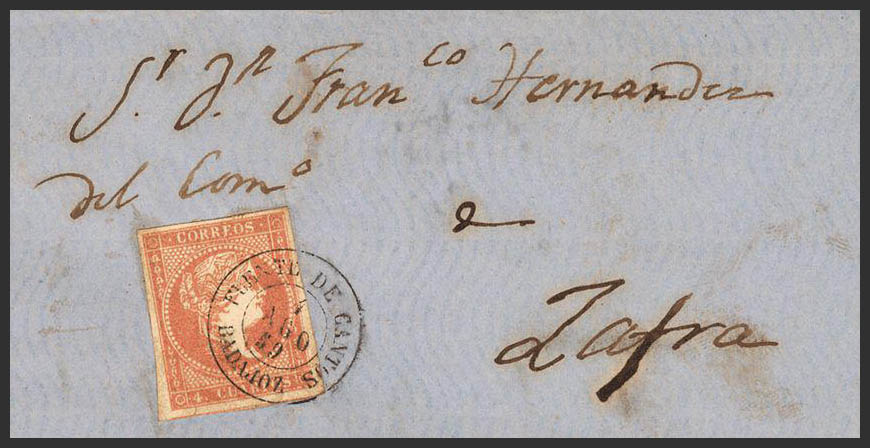 Sr. Dn. Franco Hernandez
del Como
a
Zafra
CORREOS
4. CU
FUENTE DE CANTOS
AGO
59
BADAJOZ